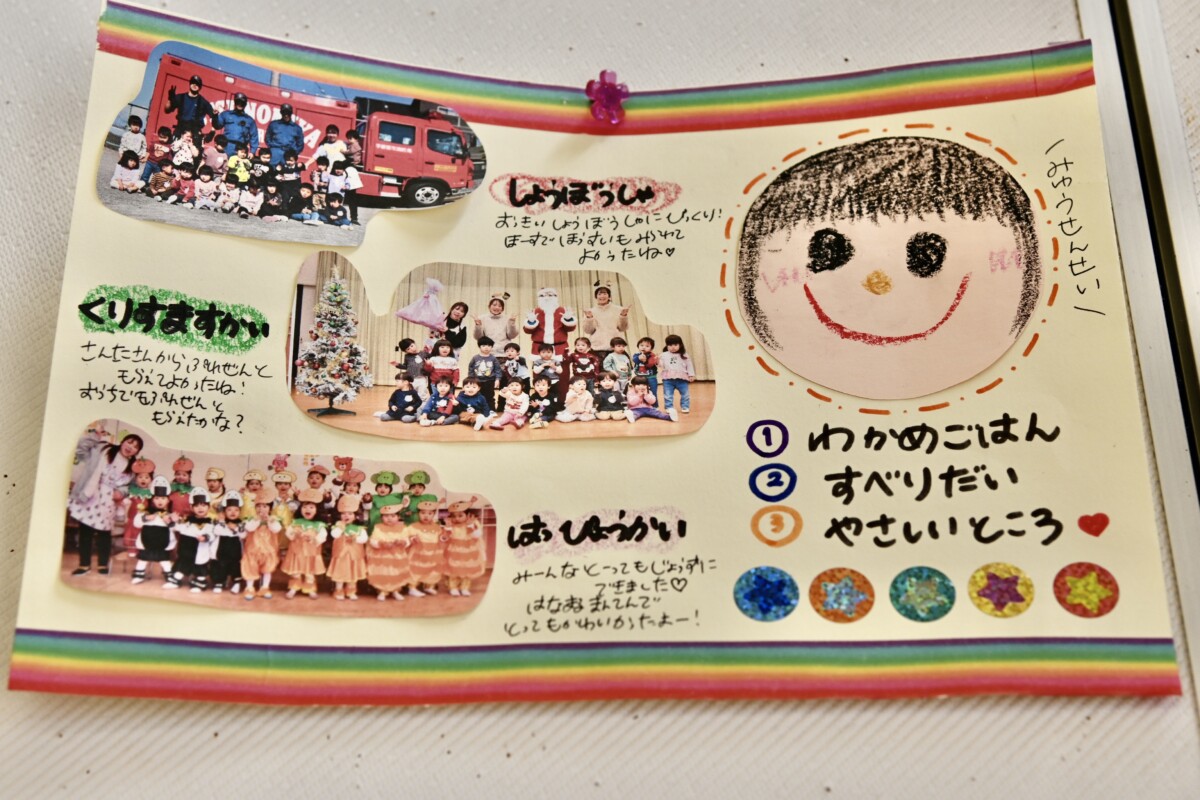 しょうぼうしゃ
おっきいしょうぼうしゃにびっくり!
ほーすでほうすいもみられて
よかったね♡
くりすますかい
さんたさんからぷれぜんと
もらえてよかったね!
おうちでもぷれぜんと
もらえたかな?
はっぴょうかい
みーんなとーってもじょうずに
できました♡
はなまるまんてんで
とってもかわいかったよー!
みゆうせんせい
① わかめごはん
② すべりだい
③ やさしいところ